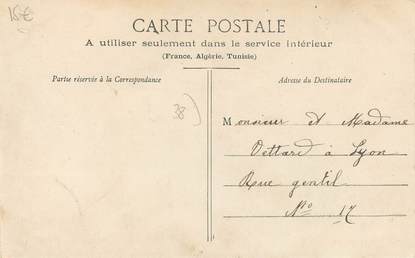 15€
CARTE POSTALE
A utiliser seulement dans le service intérieur
(France, Algérie, Tunisie)
Partie réservée à la Correspondance
Adresse du Destinataire
38)
Monsieur et Madame
Vettard à Lyon
Rue gentil
No 17